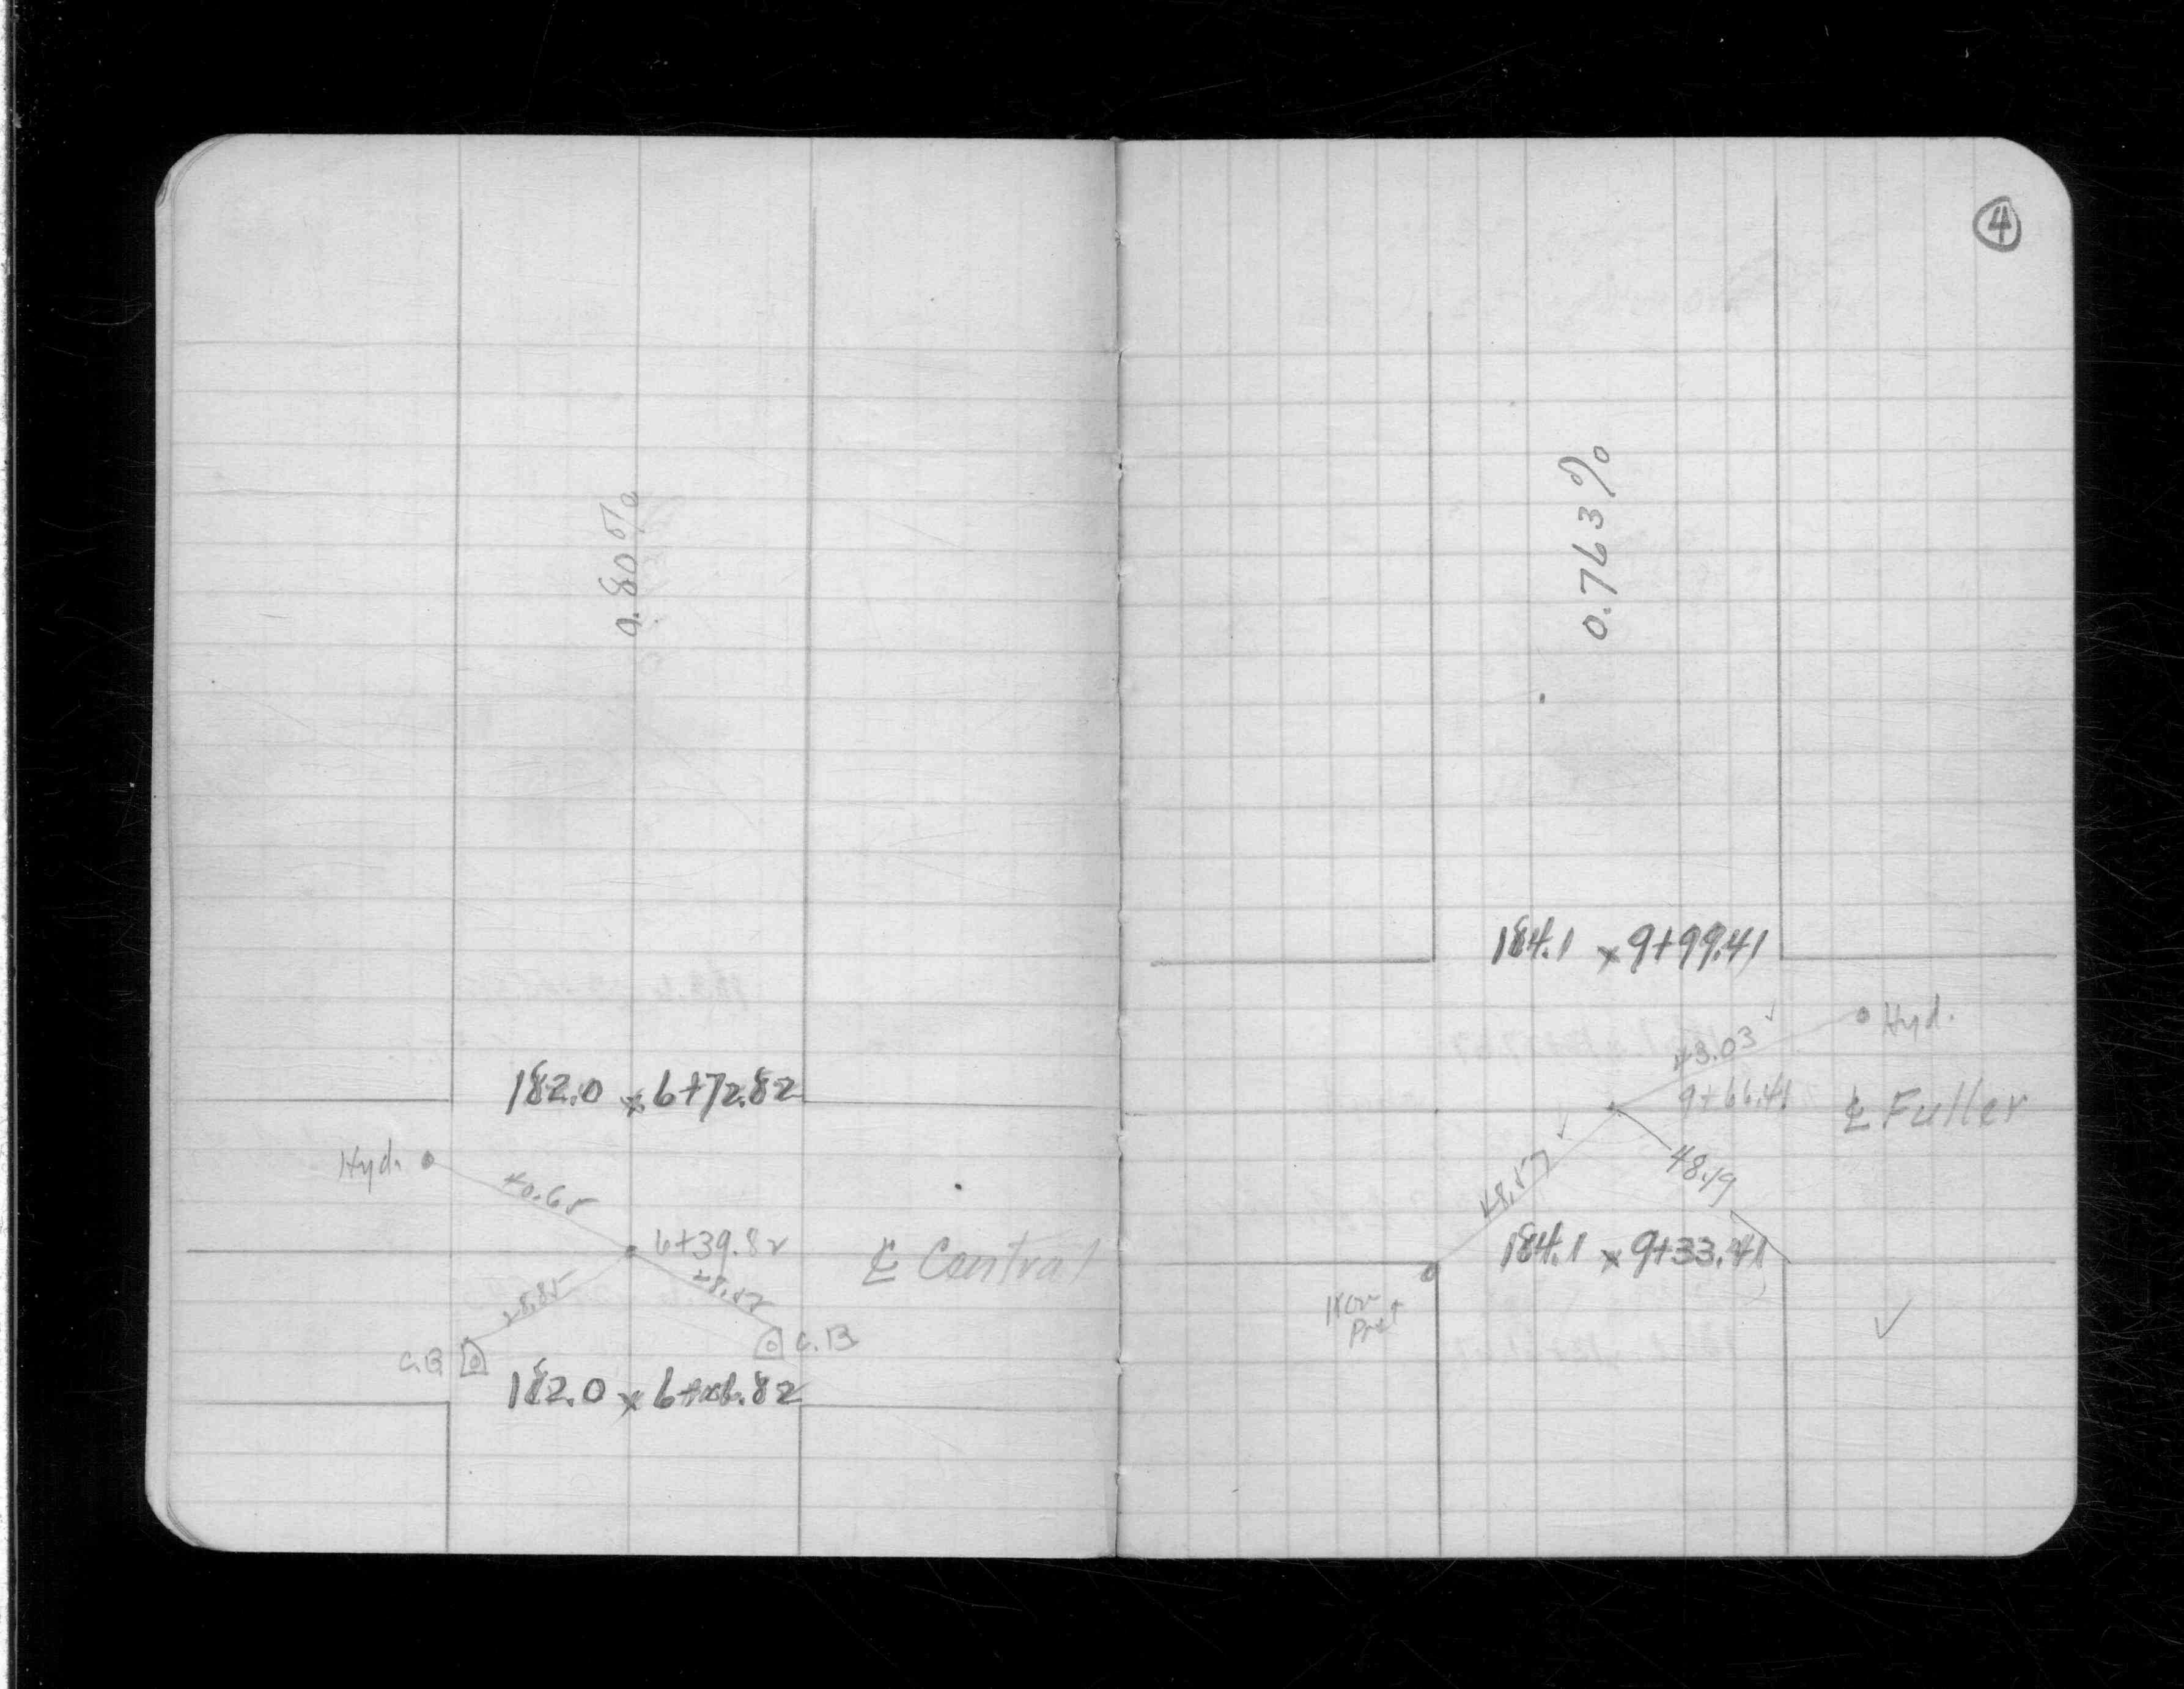 0.80%
182.0 x 6+72.82
Hyd.
40.65
6+39.82
℄ Central
28.85
28.47
C.B
C.B.
182.0 x 6+06.82
4
0.763%
184.1 x 9+99.41
Hyd.
43.03
9+66.41
℄ Fuller
48.57
48.19
184.1 x 9+33.41